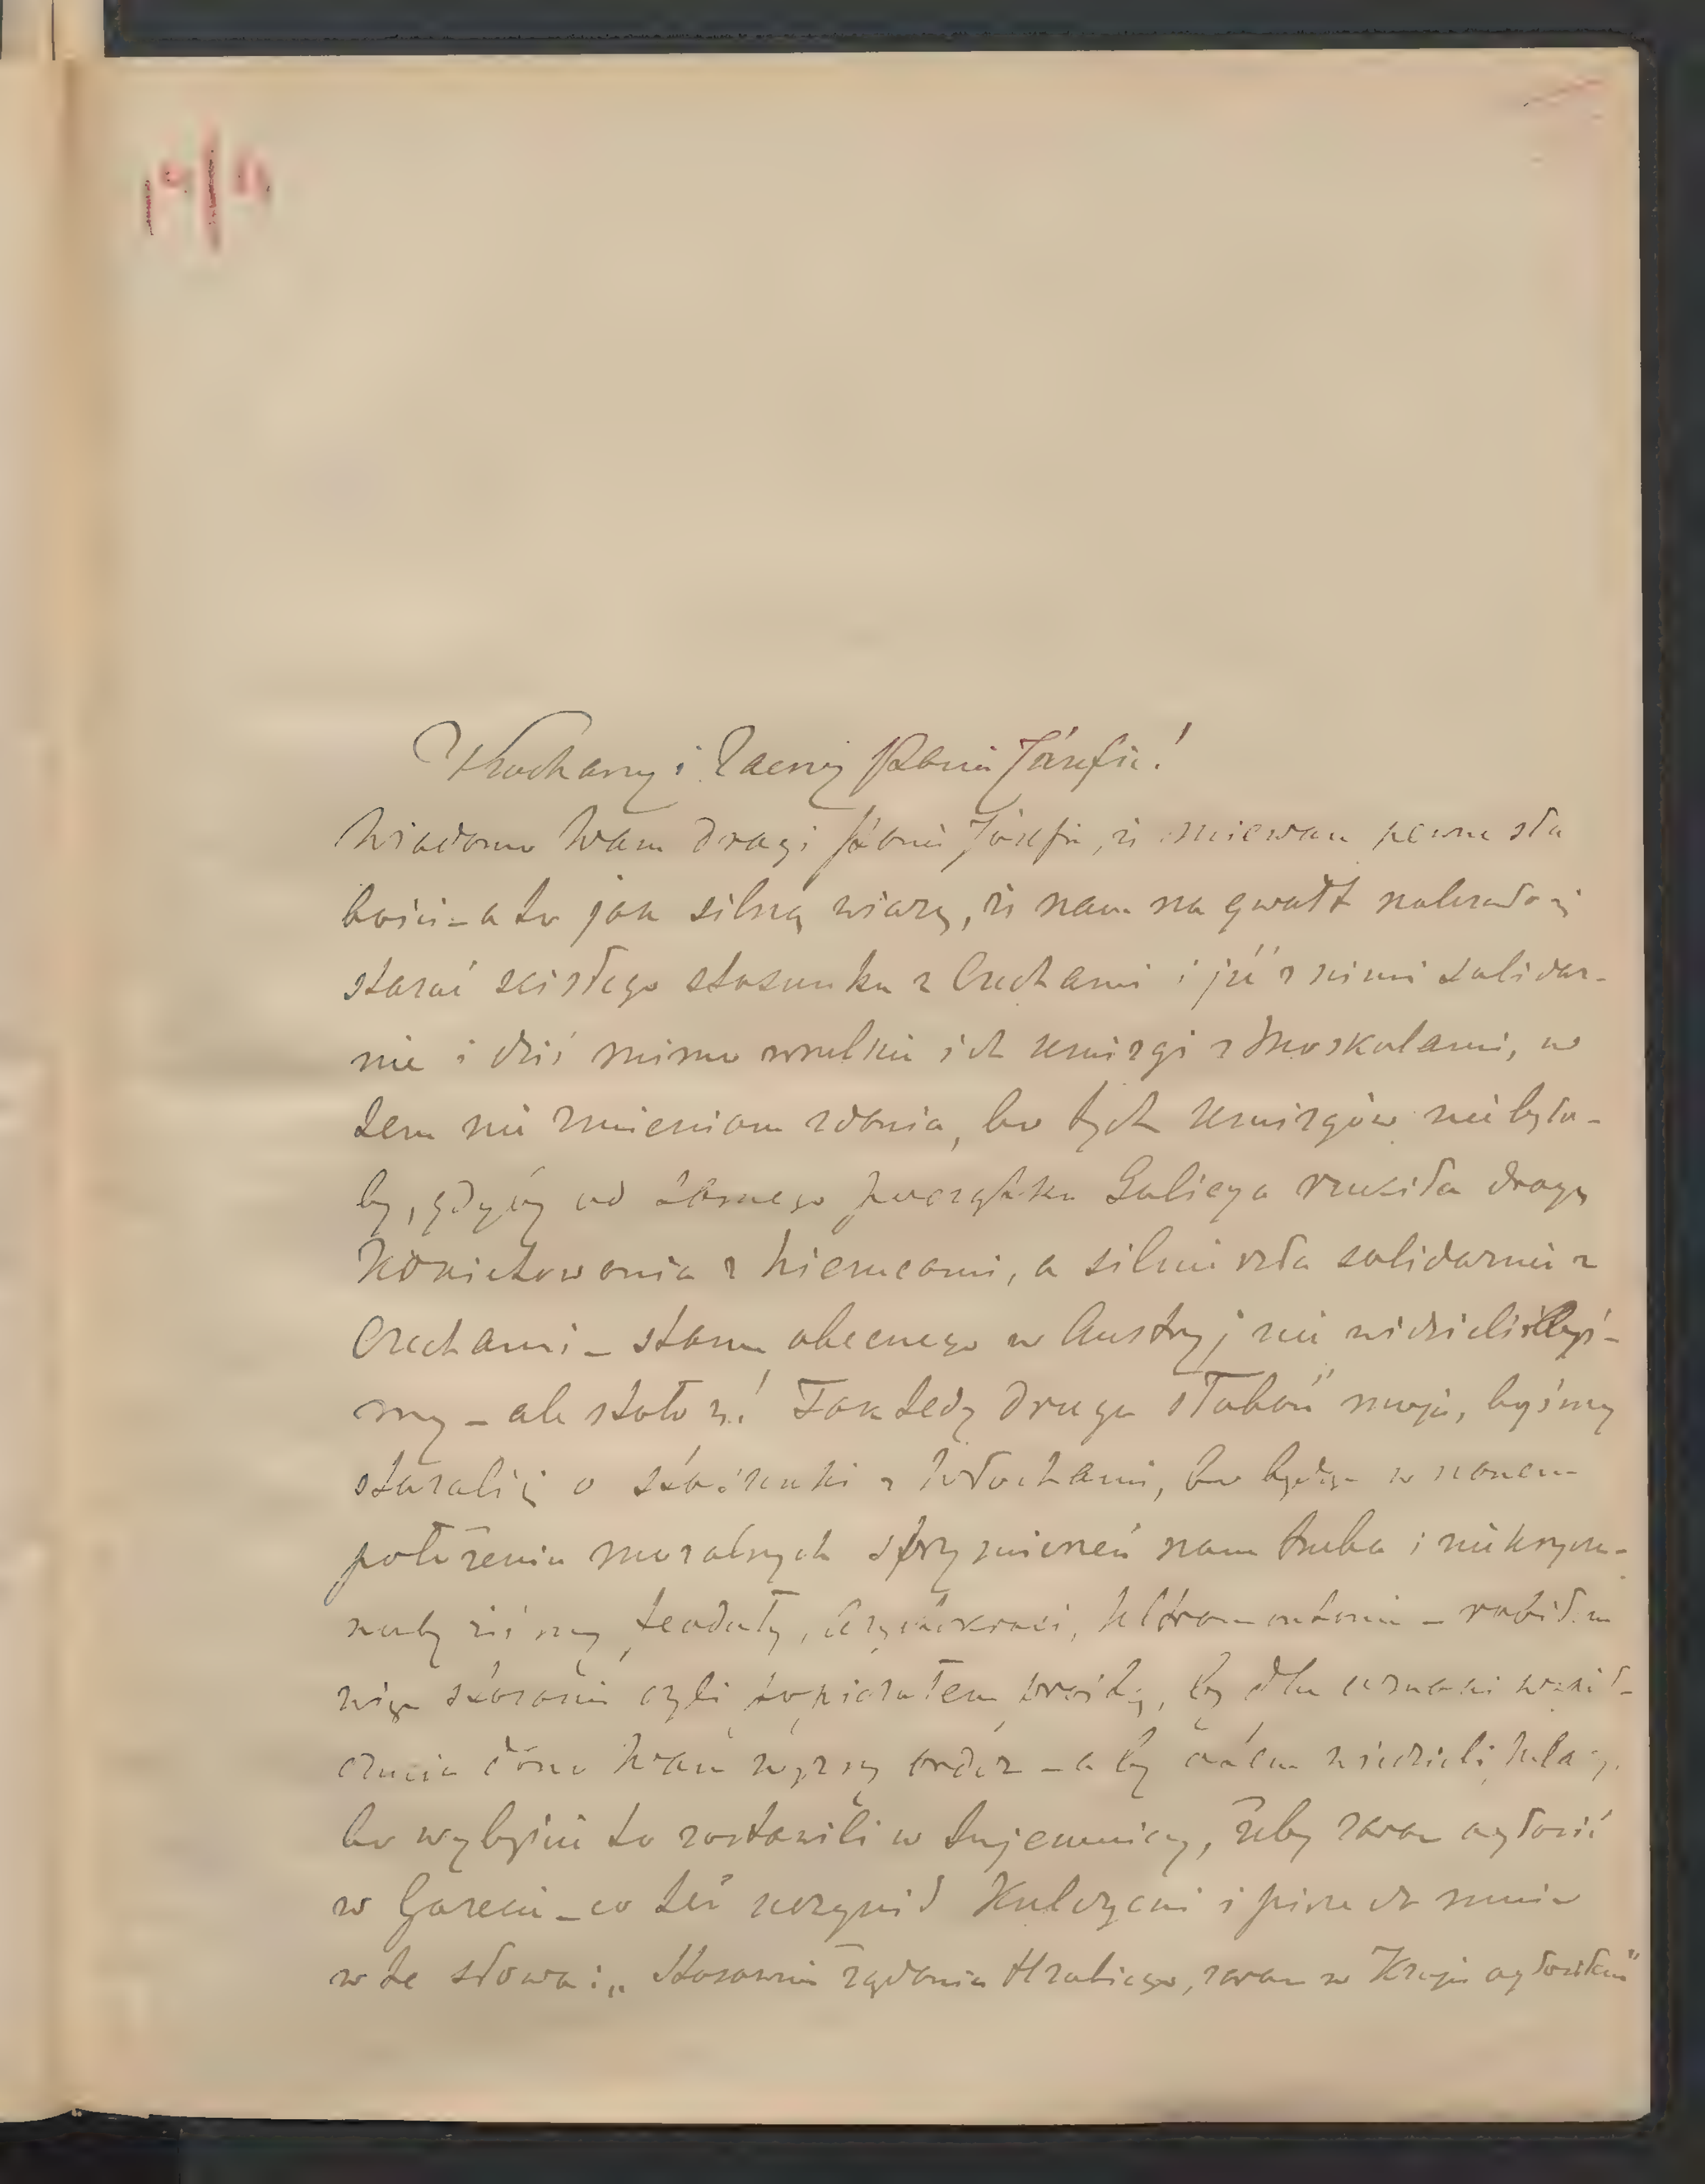 Kochany i Zacny Panie Józefie!
Wiadomo Wam drogi Panie Józefie, iż miewam pewne sła
bości – a to jak silną wiarę, iż nam na gwałt należało się
starać ścisłego stosunku z Czechami i iść z nimi solidar-
nie i dziś mimo wielkie ich umizgi z Moskalami, w
tem nie zmieniam zdania, bo tych umizgów nie było-
by, gdyby od samego początku Galicya rzuciła drogę
kokietowania z Niemcami, a silnie szła solidarnie z
Czechami – stanu obecnego w Austryj nie widzieliby-
my – ale stało się! Tak tedy druga słabość moja, byśmy
starali się o stosunki z Włochami, bo będąc w naszem
położeniu moralnych sprzymierzeń nam trzeba i nie krzyw-
my feodały, Ultramontanie – robiłem
więc starania czyli popierałem prośbę, by dla
dano Wam wyższy order – a by o tem wiedzieli
bo wybyście to zostawili w tajemnicy, żeby zaraz ogłosić
w Gazecie – co też uczynił Kulczycki i pisze do mnie
w te słowa: „Stosownie żądania Hrabiego, zaraz w Kraju ogłosiłem"